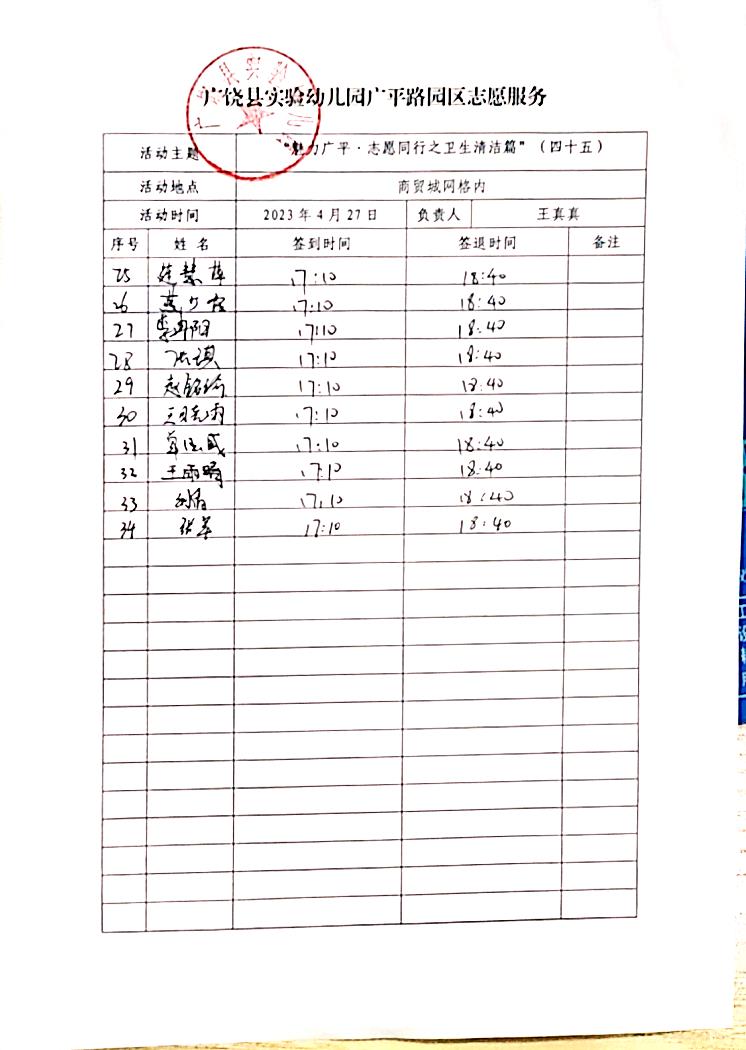 广饶县实验幼儿园广平路园区志愿服务
活动主题 "魅力广平·志愿同行之卫生清洁篇"（四十五）
活动地点 商贸城网格内
活动时间 2023年4月27日 负责人 王真真
序号 姓名 签到时间 签退时间 备注
25 17:10 18:40
26 17:10 18:40
27 17:10 18:40
28 张琪 17:10 18:40
29 赵铭瑜 17:10 18:40
30 17:10 18:40
31 17:10 18:40
32 王雨晴 17:10 18:40
33 17:10 18:40
34 张苹 17:10 18:40